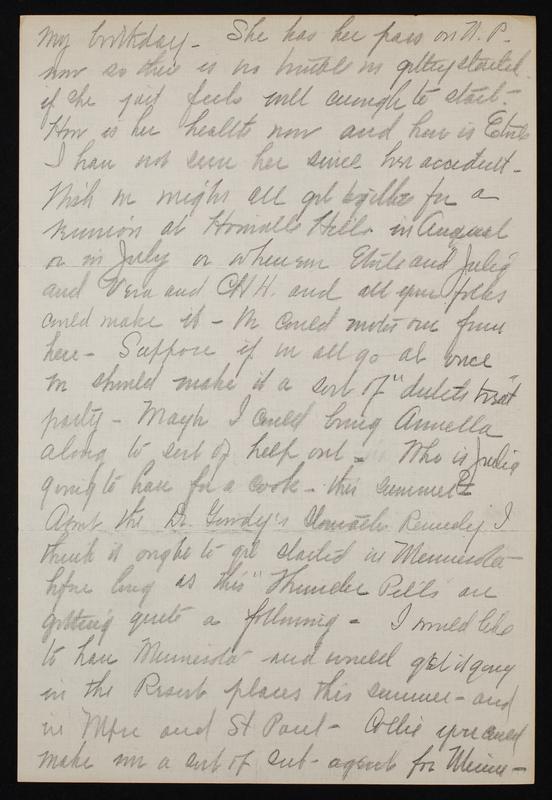 my birthday - She has her pass on N. P.
now so there is no trouble in getting started
if she just feels well enough to start -
How is her health now and how is
I have not seen her since her accident -
Wish we might all get together for a
reunion at Hills in August
or in July or whenever and Julia
and Vera and C.H.H. and all your folks
could make it - We could motor over from
here - Suppose if we all go at once
we should make it a sort of "dutch treat"
party - Maybe I could bring Annella
along to sort of help out - Who is Julia
going to have for a cook - this summer?
About the Dr. Stomach Remedy I
think it ought to get started in Minnesota
before long as this " Pills" are
getting quite a following - I would like
to have Minnesota and would get it going
in the Resort places this summer - and
in Mpls and St Paul - Collie you could
make me a sort of sub-agent for Minne -